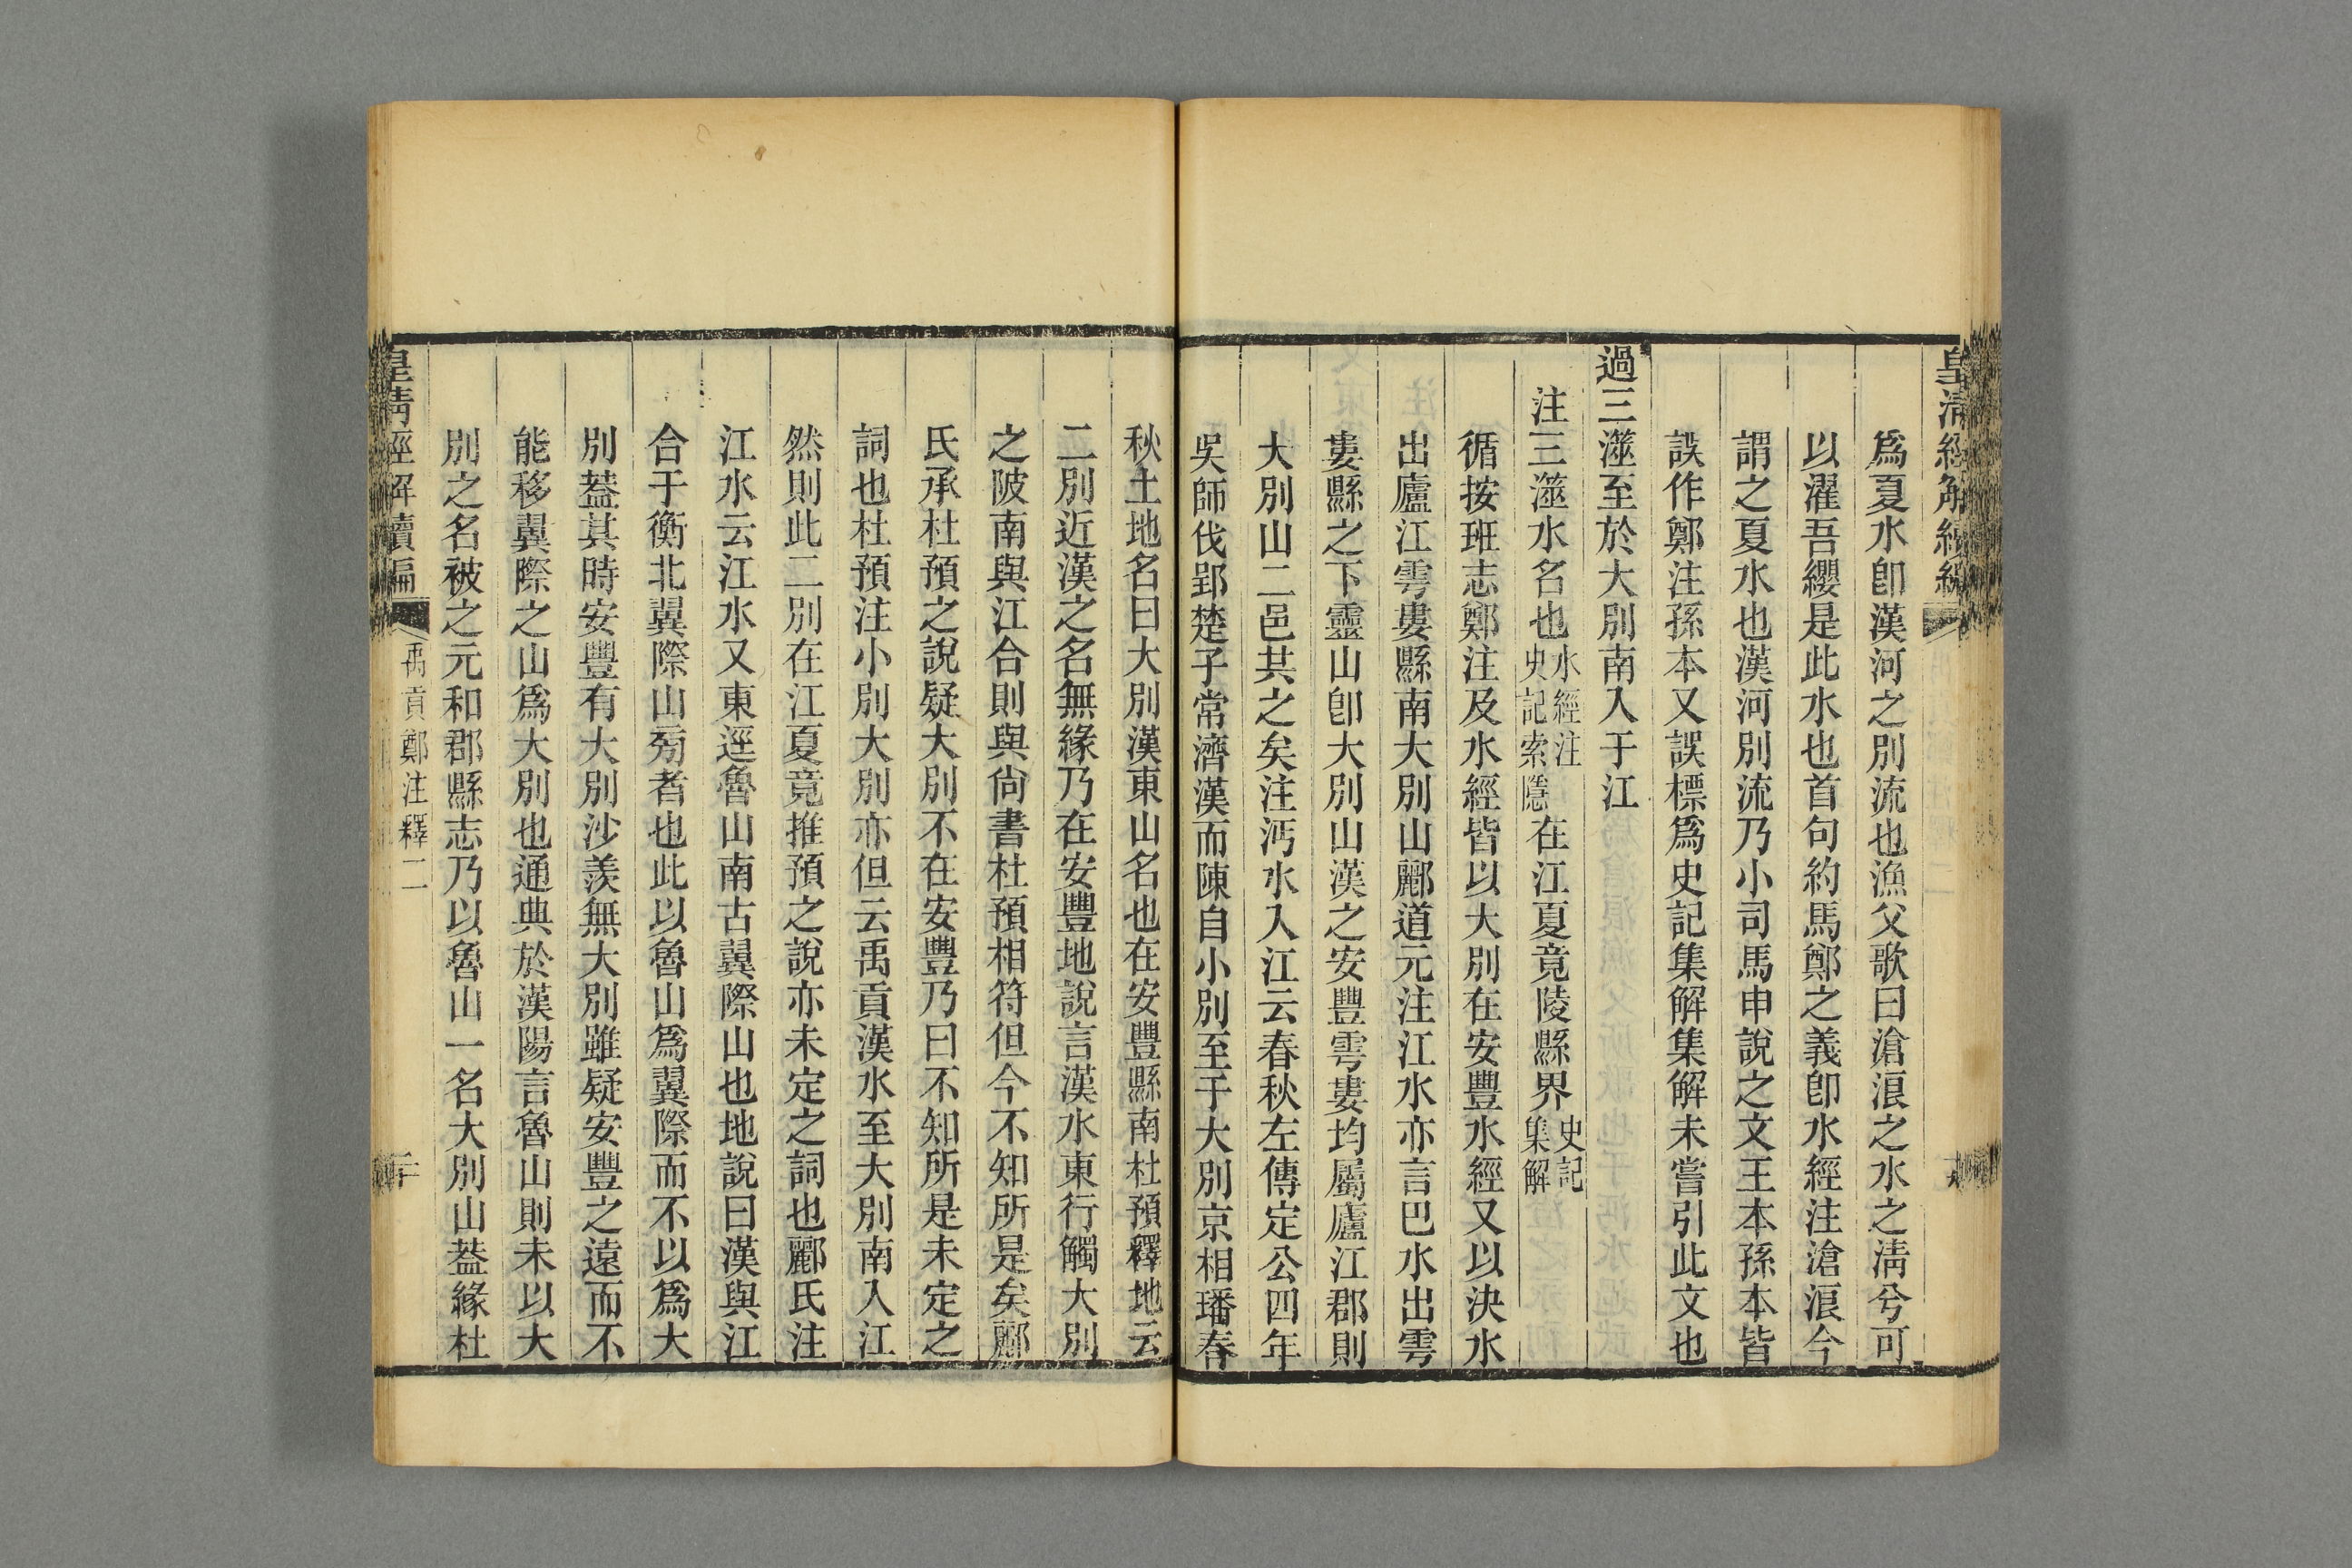 皇淸經解續編
爲夏水卽漢河之別流也漁父歌曰滄浪之水之淸兮可
以濯吾纓是此水也首句約馬鄭之義卽水經注滄浪今
謂之夏水也漢河別流乃小司馬申說之文王本孫本皆
誤作鄭注孫本又誤標爲史記集解集解未嘗引此文也
過三澨至於大別南入于江
注三澨水名也水經注史記索隱在江夏竟陵縣界史記集解
循按班志鄭注及水經皆以大別在安豐水經又以決水
出廬江雩婁縣南大別山酈道元注江水亦言巴水出雩
婁縣之下靈山卽大別山漢之安豐雩婁均屬廬江郡則
大別山二邑共之矣注沔水入江云春秋左傳定公四年
吳師伐郢楚子常濟漢而陳自小別至于大別京相璠春
秋土地名曰大別漢東山名也在安豐縣南杜預釋地云
二別近漢之名無緣乃在安豐地說言漢水東行觸大別
之陂南與江合則與尙書杜預相符但今不知所是矣酈
氏承杜預之說疑大別不在安豐乃曰不知所是未定之
詞也杜預注小別大別亦但云禹貢漢水至大別南入江
然則此二別在江夏竟推預之說亦未定之詞也酈氏注
江水云江水又東逕魯山南古翼際山也地說曰漢與江
合于衡北翼際山㫄者也此以魯山爲翼際而不以爲大
別葢其時安豐有大別沙羨無大別雖疑安豐之遠而不
能移翼際之山爲大別也通典於漢陽言魯山則未以大
別之名被之元和郡縣志乃以魯山一名大別山葢緣杜
皇淸經解續編
禹貢鄭注釋二
二十